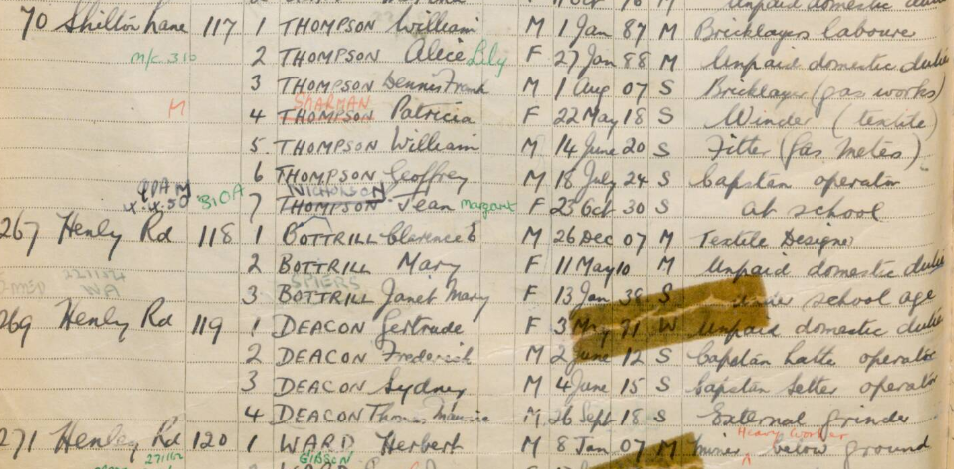 unpaid domestic
70 Shilton Lane 117 1 THOMPSON William M 1 Jan 87 M Bricklayers laboure
m/c 310 2 THOMPSON Alice Lily F 27 Jan 88 M Unpaid domestic dutie
3 THOMPSON Dennis Frank M 1 Aug 07 S Bricklayer (gas works)
SHARMAN
M 4 THOMPSON Patricia F 22 May 18 S Winder (textile)
5 THOMPSON William M 14 June 20 S Fitter (Gas Meters)
6 THOMPSON Geoffrey M 18 July 24 S Capstan operator
NICHOLSON
4.4.50 310A 7 THOMPSON Jean Margaret F 23 Oct 30 S at school
267 Henly Rd 118 1 BOTTRILL Clarence E M 26 Dec 07 M Textile Designer
2 BOTTRILL Mary F 11 May 10 M Unpaid domestic dutie
SPIERS
3 BOTTRILL Janet Mary F 13 Jan 38 S under school age
269 Henly Rd 119 1 DEACON Gertrude F 3 May 71 W Unpaid domestic dutie
2 DEACON Frederick M 2 June 12 S Capstan lathe operator
3 DEACON Sydney M 4 June 15 S Capstan Setter operator
4 DEACON Thomas Maurice M 26 Sept 18 S External grinder
Heavy Worker
271 Henley Rd 120 1 WARD Herbert M 8 Jan 07 M miner below ground
GIBSON